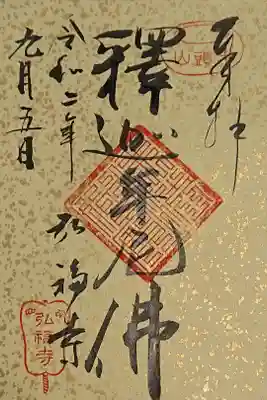 奉拝
釋迦牟尼佛
弘福寺
令和二年
九月五日
弘福寺